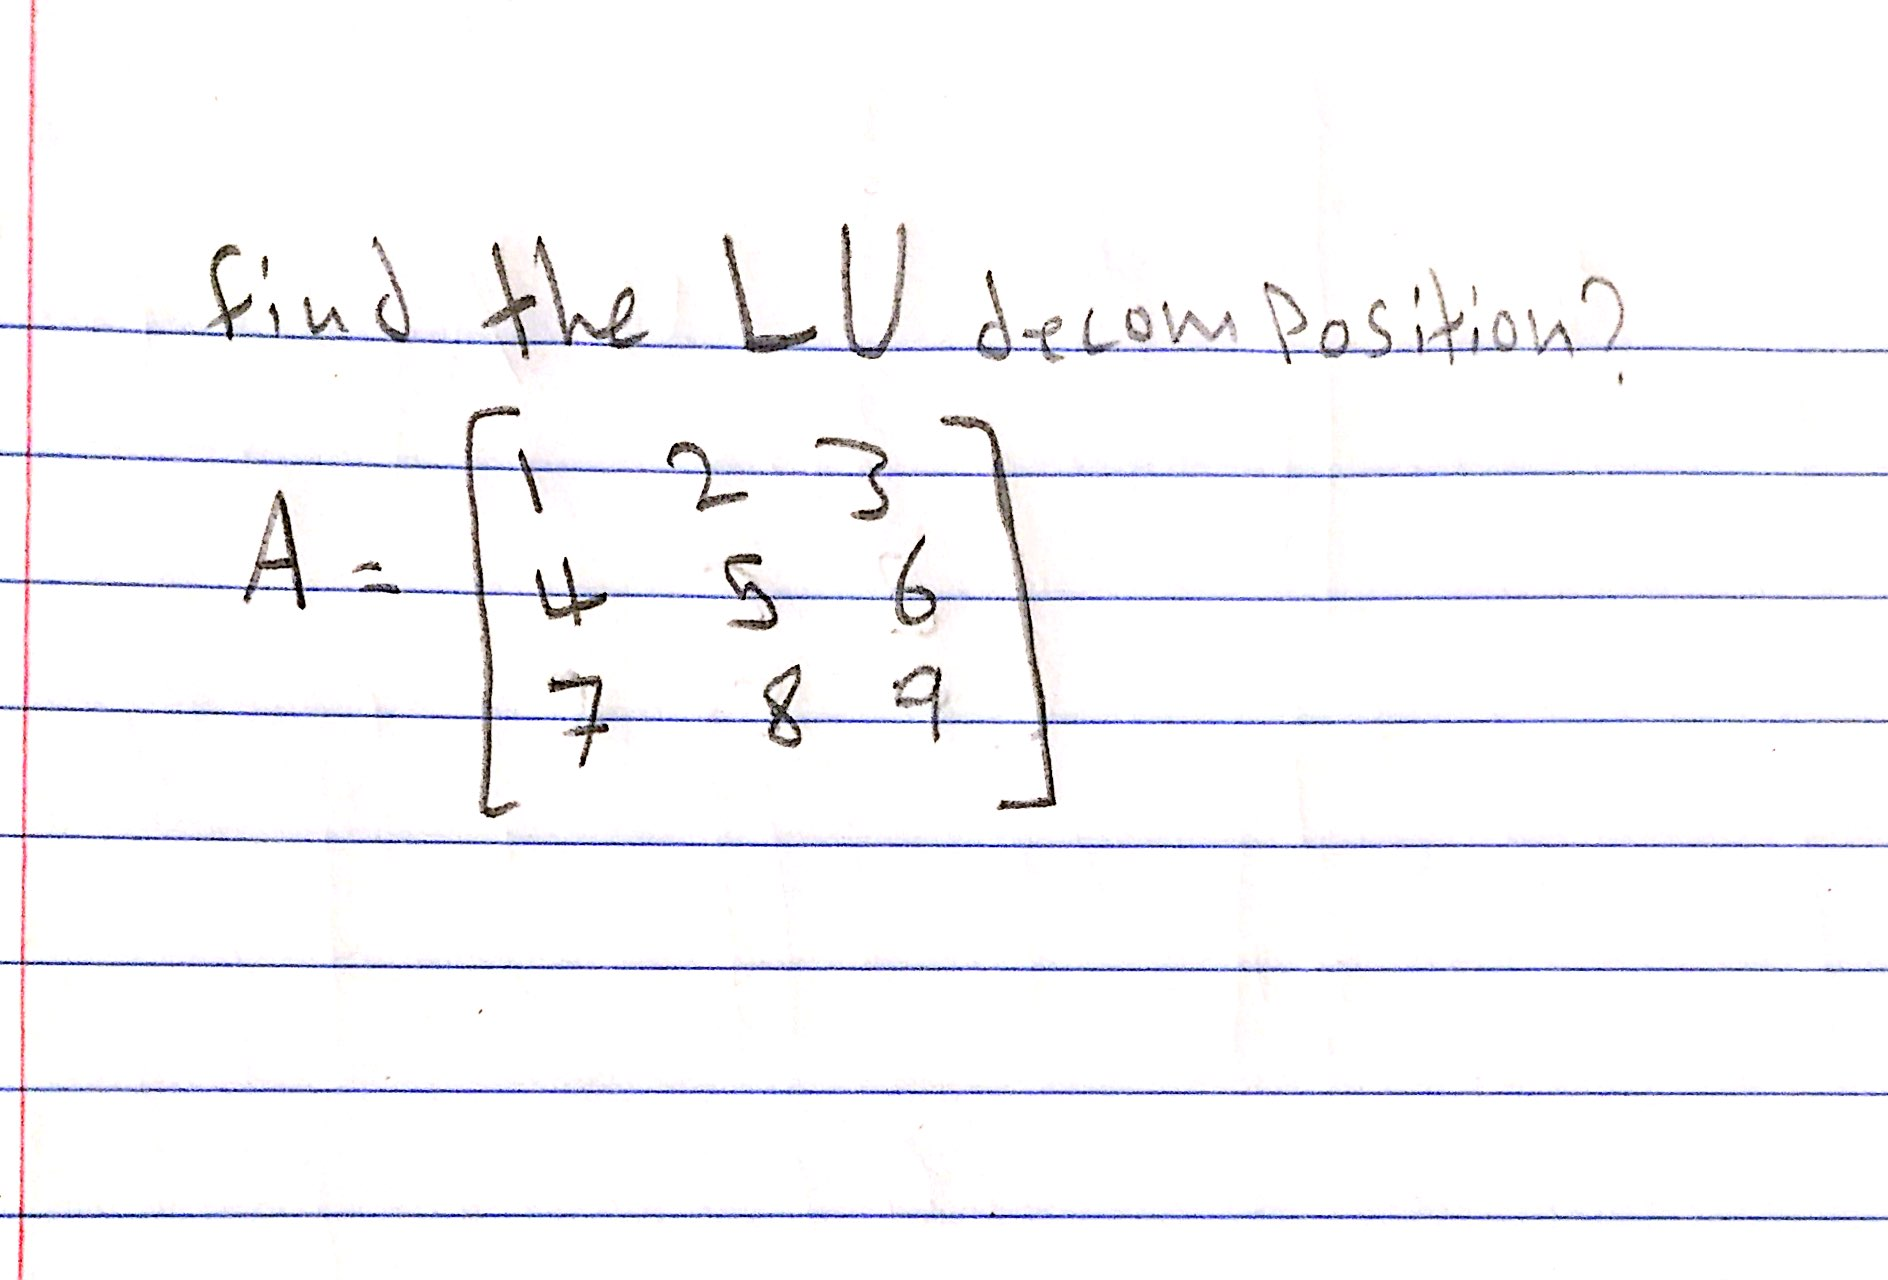 find the LU decomposition?
A = [1 2 3
4 5 6
7 8 9]